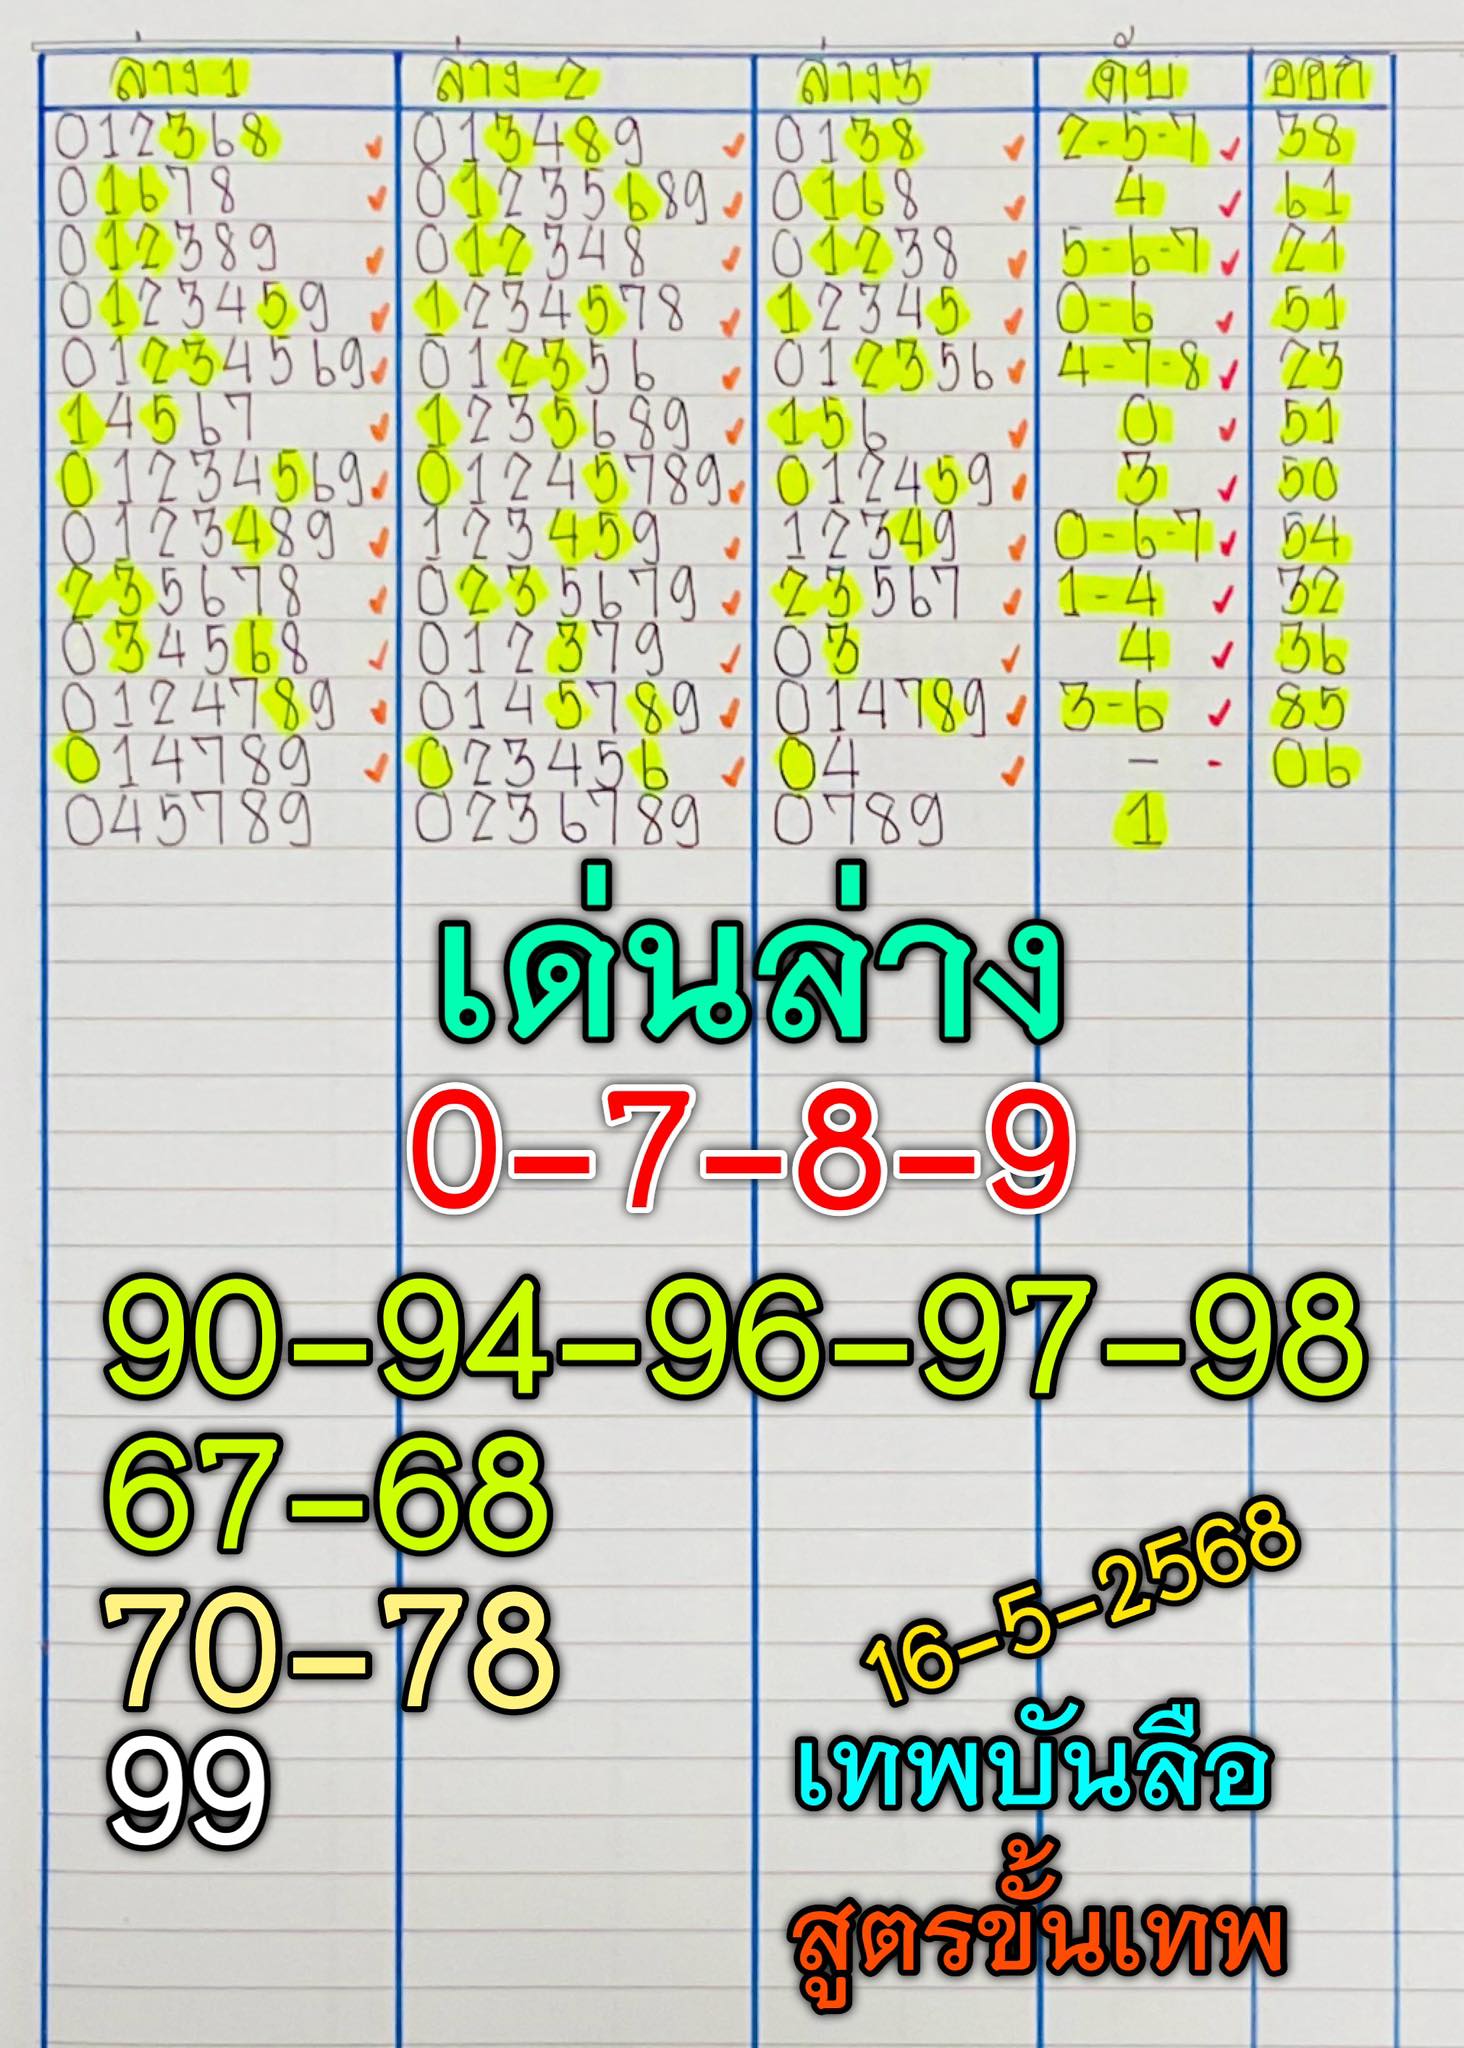 ล่าง 1 ล่าง 2 ล่าง 3 ดับ ออก
012368 013489 0138 2-5-7 38
01678 01235689 0168 4 61
012389 012348 01238 5-6-7 21
0123459 1234578 12345 0-6 51
01234569 012356 012356 4-7-8 23
14567 1235689 156 0 51
01234569 01245789 012459 3 50
0123489 123459 12349 0-6-7 54
235678 0235679 23567 1-4 32
034568 012379 03 4 36
0124789 0145789 014789 3-6 85
014789 023456 04 - 06
045789 0236789 0789 1
เด่นล่าง
0-7-8-9
90-94-96-97-98
67-68
70-78
99
16-5-2568
เทพบันลือ
สูตรขั้นเทพ